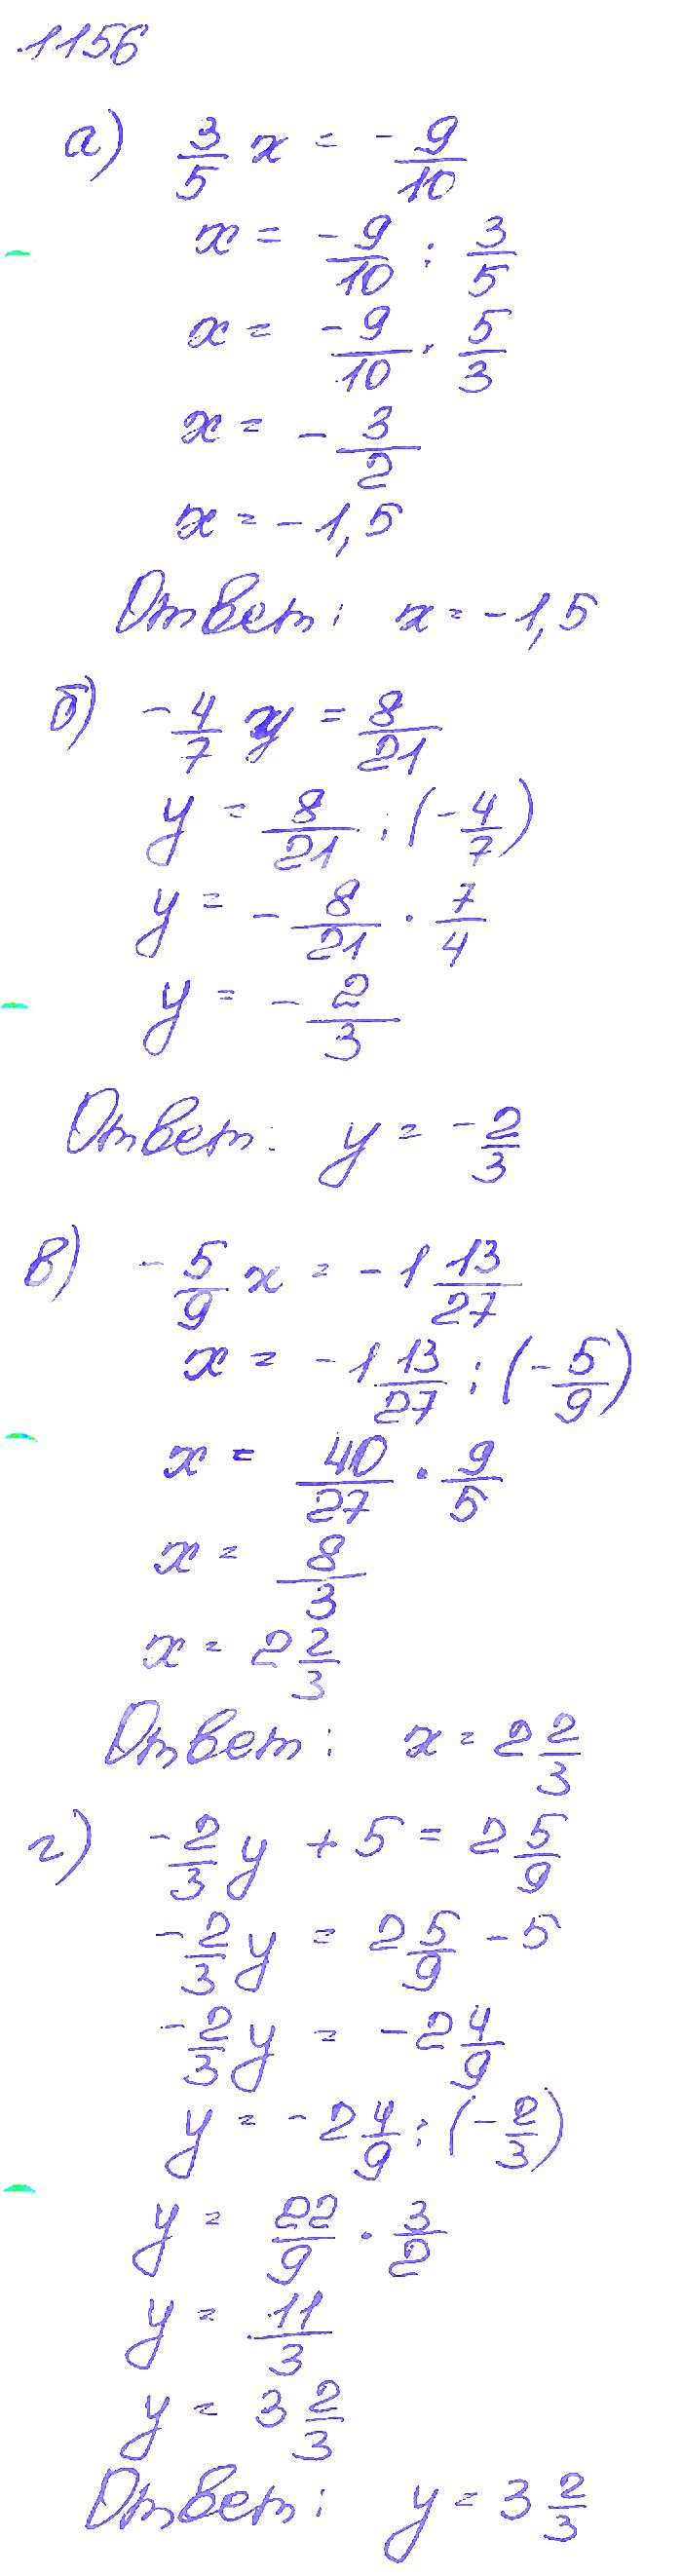 1156
а) 3/5 x = - 9/10
x = -9/10 : 3/5
x = -9/10 · 5/3
x = - 3/2
x = -1,5
Ответ: x = -1,5
б) -4/7 y = 8/21
y = 8/21 : (-4/7)
y = - 8/21 · 7/4
y = - 2/3
Ответ: y = -2/3
в) -5/9 x = -1 13/27
x = -1 13/27 : (-5/9)
x = 40/27 · 9/5
x = 8/3
x = 2 2/3
Ответ: x = 2 2/3
г) -2/3 y + 5 = 2 5/9
-2/3 y = 2 5/9 - 5
-2/3 y = -2 4/9
y = -2 4/9 : (-2/3)
y = 22/9 · 3/2
y = 11/3
y = 3 2/3
Ответ: y = 3 2/3